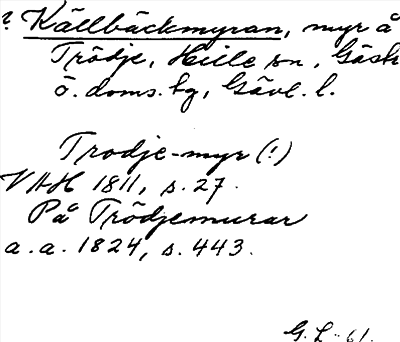 ? Källbäckmyran, myr å
Trödje, Hille sn, Gästr
ö. doms. hg, Gävl. l.
Trodje-myr (!)
VAH 1811, s. 27.
På Trödjemurar
a.a. 1824, s. 443.
G. L. 61.